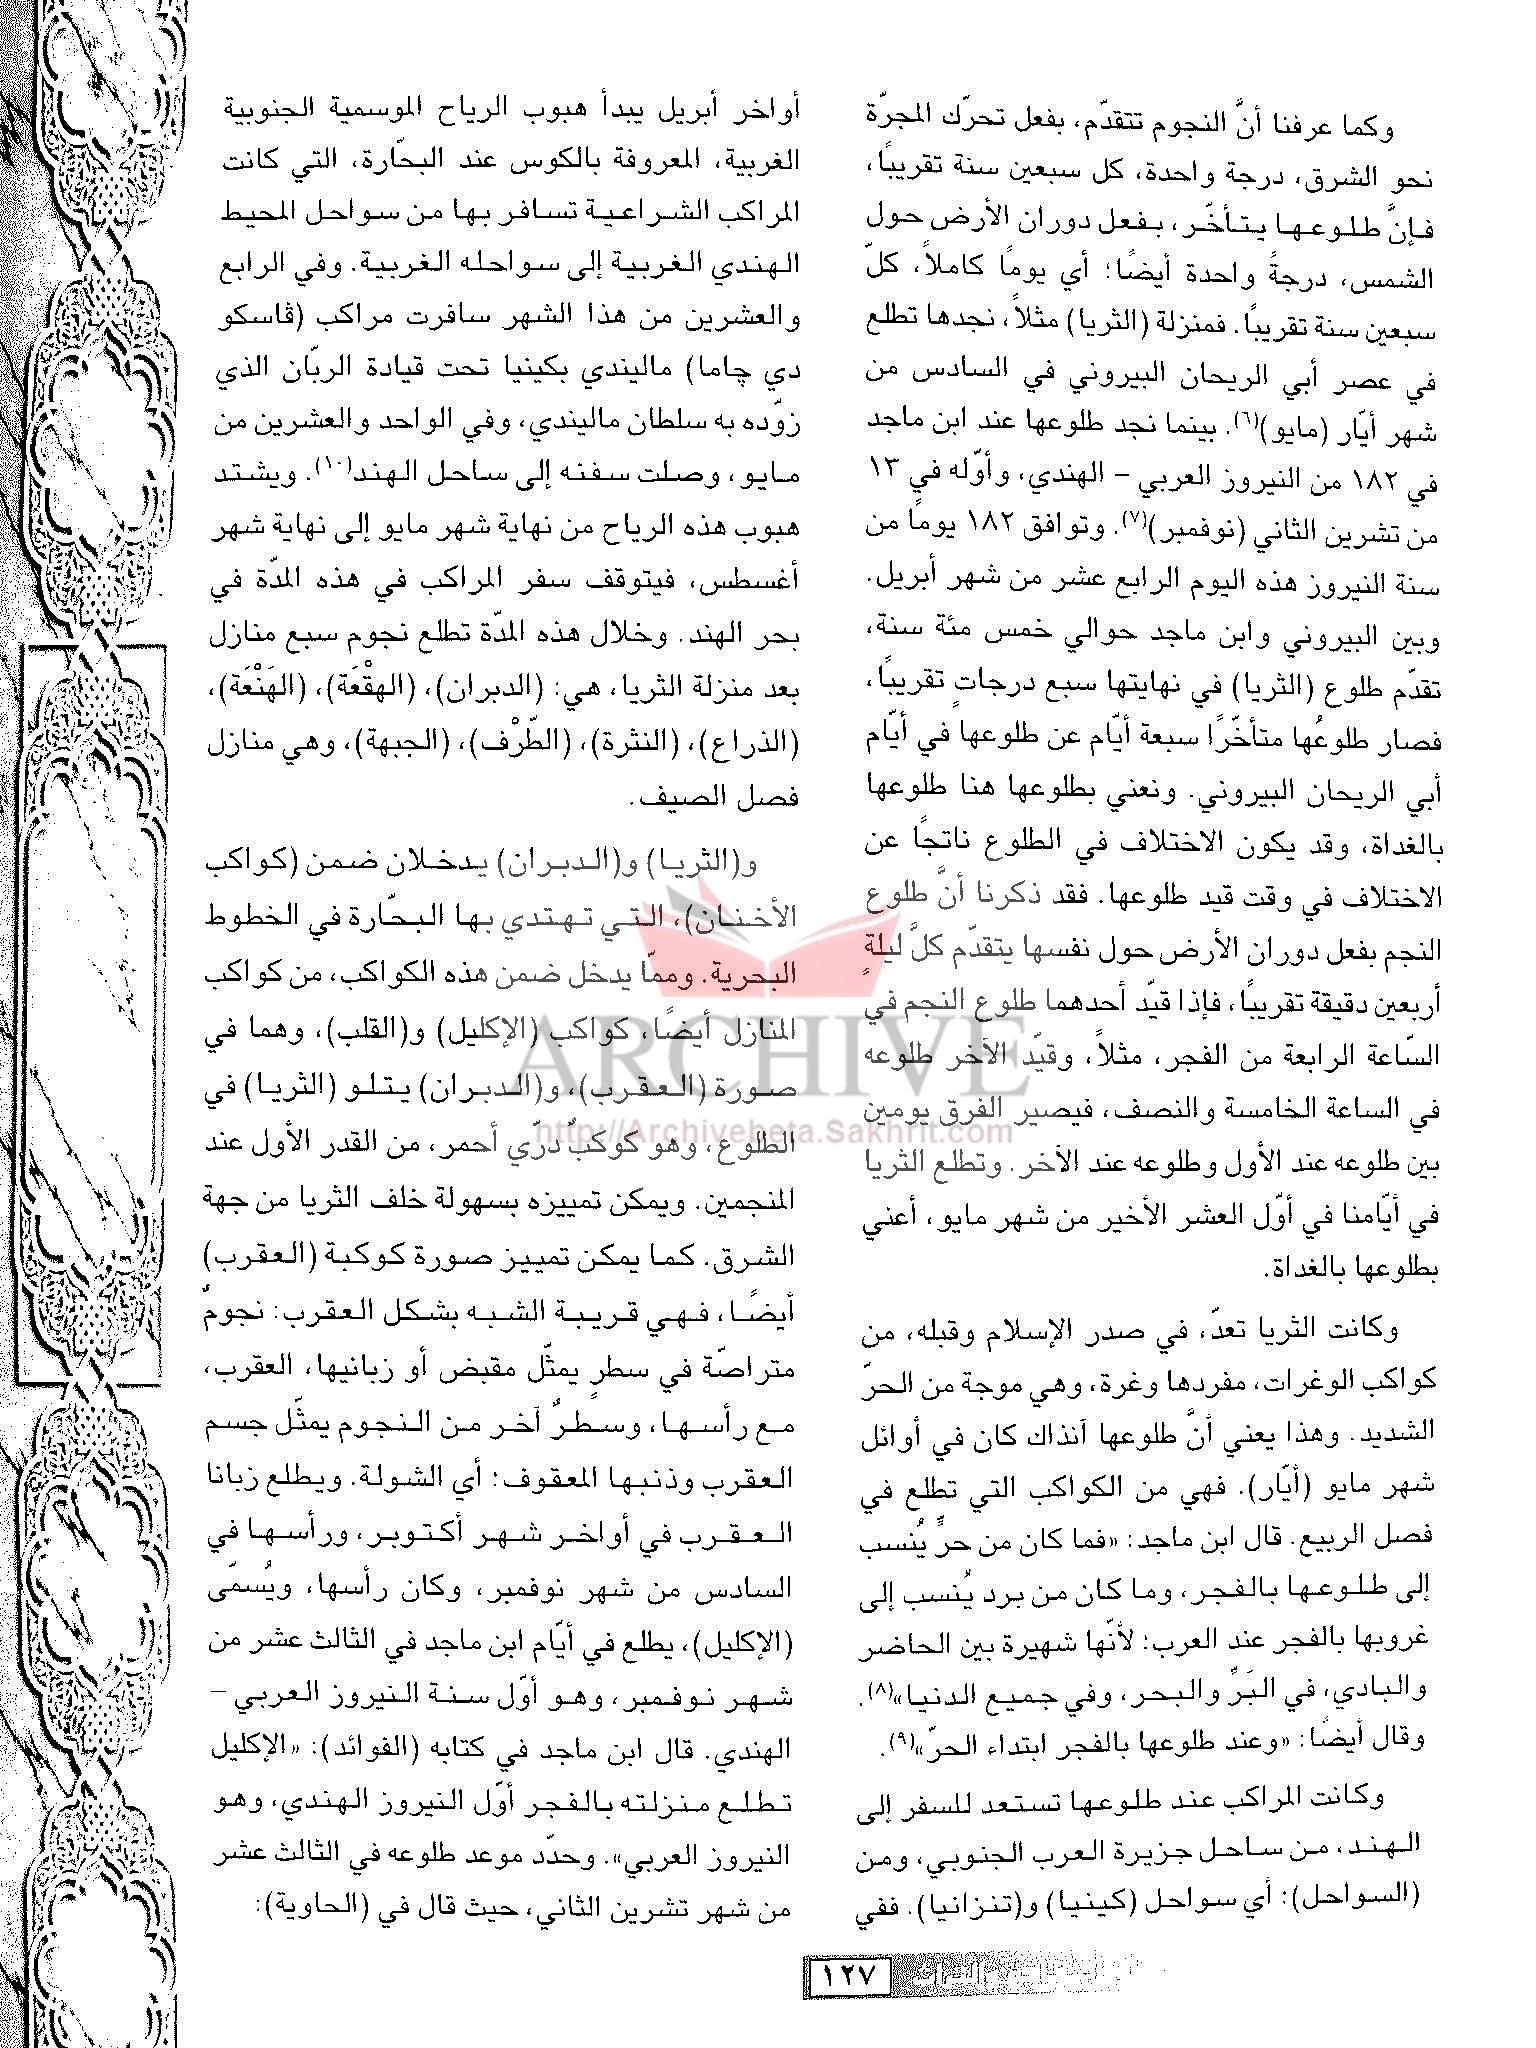 وكما عرفنا أنَّ النجوم تتقدّم، بفعل تحرّك المجرّة
نحو الشرق، درجة واحدة، كل سبعين سنة تقريبًا،
فإنَّ طلوعها يتأخّر، بفعل دوران الأرض حول
الشمس، درجةً واحدة أيضًا؛ أي يومًا كاملاً، كلّ
سبعين سنة تقريبًا. فمنزلة (الثريا) مثلاً، نجدها تطلع
في عصر أبي الريحان البيروني في السادس من
شهر أيّار (مايو)(٦). بينما نجد طلوعها عند ابن ماجد
في ١٨٢ من النيروز العربي – الهندي، وأوّله في ١٣
من تشرين الثاني (نوفمبر)(٧). وتوافق ١٨٢ يومًا من
سنة النيروز هذه اليوم الرابع عشر من شهر أبريل.
وبين البيروني وابن ماجد حوالي خمس مئة سنة،
تقدّم طلوع (الثريا) في نهايتها سبع درجاتٍ تقريبًا،
فصار طلوعُها متأخّرًا سبعة أيّام عن طلوعها في أيّام
أبي الريحان البيروني. ونعني بطلوعها هنا طلوعها
بالغداة، وقد يكون الاختلاف في الطلوع ناتجًا عن
الاختلاف في وقت قيد طلوعها. فقد ذكرنا أنَّ طلوع
النجم بفعل دوران الأرض حول نفسها يتقدّم كلَّ ليلةٍ
أربعين دقيقة تقريبًا، فإذا قيّد أحدهما طلوع النجم في
السّاعة الرابعة من الفجر، مثلاً، وقيّد الآخر طلوعه
في الساعة الخامسة والنصف، فيصير الفرق يومين
بين طلوعه عند الأول وطلوعه عند الآخر. وتطلع الثريا
في أيّامنا في أوّل العشر الأخير من شهر مايو، أعني
بطلوعها بالغداة.
وكانت الثريا تعدّ، في صدر الإسلام وقبله، من
كواكب الوغرات، مفردها وغرة، وهي موجة من الحرّ
الشديد. وهذا يعني أنَّ طلوعها آنذاك كان في أوائل
شهر مايو (أيّار). فهي من الكواكب التي تطلع في
فصل الربيع. قال ابن ماجد: «فما كان من حرٍّ يُنسب
إلى طلوعها بالفجر، وما كان من برد يُنسب إلى
غروبها بالفجر عند العرب؛ لأنّها شهيرة بين الحاضر
والبادي، في البَرِّ والبحر، وفي جميع الدنيا»(٨).
وقال أيضًا: «وعند طلوعها بالفجر ابتداء الحرّ»(٩).
وكانت المراكب عند طلوعها تستعد للسفر إلى
الهند، من ساحل جزيرة العرب الجنوبي، ومن
(السواحل): أي سواحل (كينيا) و(تنزانيا). ففي
أواخر أبريل يبدأ هبوب الرياح الموسمية الجنوبية
الغربية، المعروفة بالكوس عند البحّارة، التي كانت
المراكب الشراعية تسافر بها من سواحل المحيط
الهندي الغربية إلى سواحله الغربية. وفي الرابع
والعشرين من هذا الشهر سافرت مراكب (ڤاسكو
دي چاما) ماليندي بكينيا تحت قيادة الربّان الذي
زوّده به سلطان ماليندي، وفي الواحد والعشرين من
مايو، وصلت سفنه إلى ساحل الهند(١٠). ويشتد
هبوب هذه الرياح من نهاية شهر مايو إلى نهاية شهر
أغسطس، فيتوقف سفر المراكب في هذه المدّة في
بحر الهند. وخلال هذه المدّة تطلع نجوم سبع منازل
بعد منزلة الثريا، هي: (الدبران)، (الهقْعَة)، (الهَنْعَة)،
(الذراع)، (النثرة)، (الطّرْف)، (الجبهة)، وهي منازل
فصل الصيف.
و(الثريا) و(الدبران) يدخلان ضمن (كواكب
الأخنان)، التي تهتدي بها البحّارة في الخطوط
البحرية. وممّا يدخل ضمن هذه الكواكب، من كواكب
المنازل أيضًا، كواكب (الإكليل) و(القلب)، وهما في
صورة (العقرب)، و(الدبران) يتلو (الثريا) في
الطلوع، وهو كوكبٌ درّي أحمر، من القدر الأول عند
المنجمين. ويمكن تمييزه بسهولة خلف الثريا من جهة
الشرق. كما يمكن تمييز صورة كوكبة (العقرب)
أيضًا، فهي قريبة الشبه بشكل العقرب: نجومٌ
متراصّة في سطرٍ يمثّل مقبض أو زبانيها، العقرب،
مع رأسها، وسطرٌ آخر من النجوم يمثّل جسم
العقرب وذنبها المعقوف؛ أي الشولة. ويطلع زبانا
العقرب في أواخر شهر أكتوبر، ورأسها في
السادس من شهر نوفمبر، وكان رأسها، ويُسمّى
(الإكليل)، يطلع في أيّام ابن ماجد في الثالث عشر من
شهر نوفمبر، وهو أوّل سنة النيروز العربي –
الهندي. قال ابن ماجد في كتابه (الفوائد): «الإكليل
تطلع منزلته بالفجر أوّل النيروز الهندي، وهو
النيروز العربي». وحدّد موعد طلوعه في الثالث عشر
من شهر تشرين الثاني، حيث قال في (الحاوية):
ARCHIVE
http://Archivebeta.Sakhrit.com
١٢٧